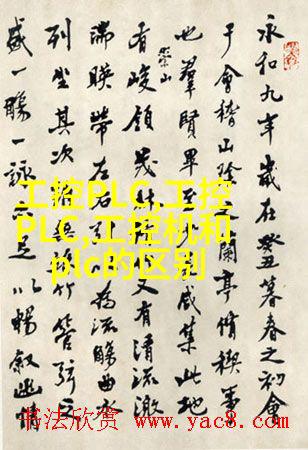 永和九年歲在癸丑暮春之初會
于會稽山陰之蘭亭脩稧事
也羣賢畢至咸集此地
有崇山峻領茂林又有清流激
湍暎帶左右引為流觴曲水
列坐其次竹管弦之
盛一觴一詠亦足以暢敘幽情
工控PLC,工控
PLC,工控机和
plc的区别
书法欣赏 www.yac8.com